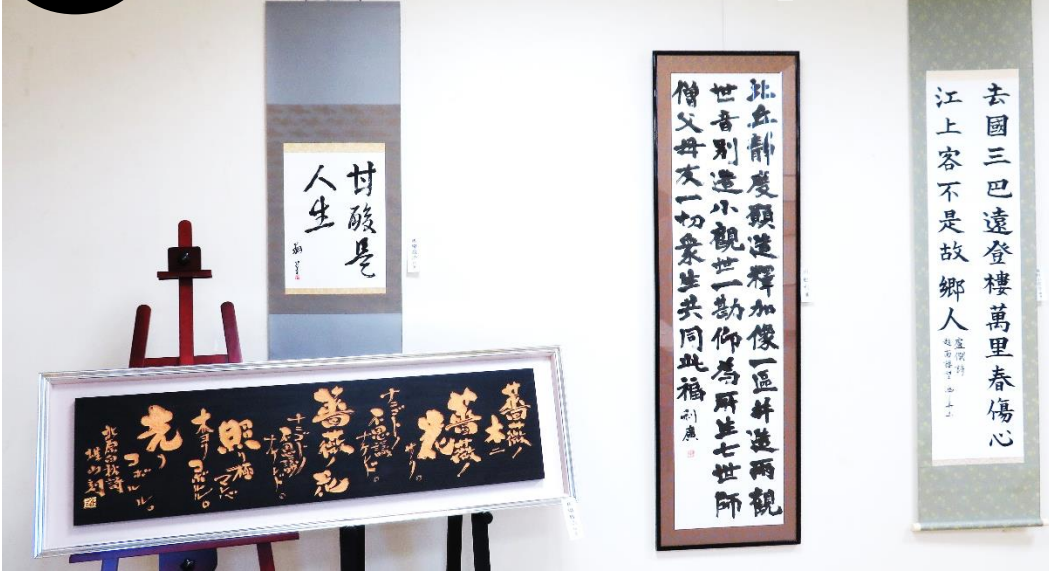 甘酸是
人生
薔薇ノ
木ニ
薔薇ノ
花
サク。
ナニゴトノ
不思議
ナケレド。
薔薇ノ花
ナニゴトノ
不思議
ナケレド。
照リ極
マレバ
木ヨリ
コボルル。
光リ
コボルル。
北原白秋詩
雄山刻
比丘静度顯造釋加像一區并造兩觀
世音別造小觀世一勘仰為所生七世師
僧父母友一切衆生共同此福
去國三巴遠登樓萬里春傷心
江上客不是故鄉人
盧僎詩